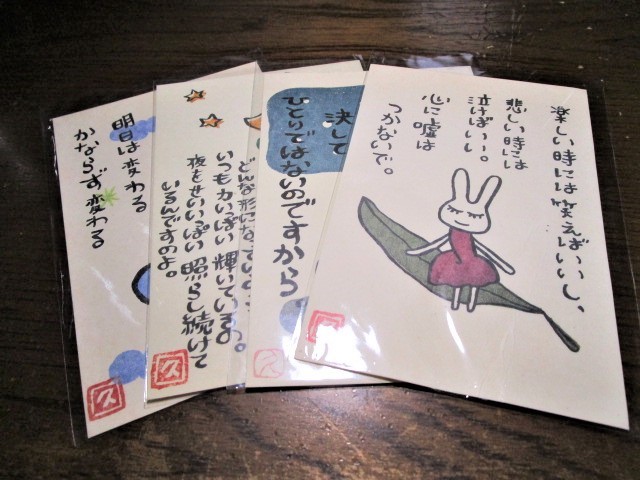 明日は変わる
かならず変わる
久
どんな形になっていても
いつも力いっぱい輝いているの。
夜をせいいっぱい照らし続けて
いるんですのよ。
久
決して
ひとりではないのですから。
久
楽しい時には笑えばいいし、
悲しい時には
泣けばいい。
心に嘘は
つかないで。